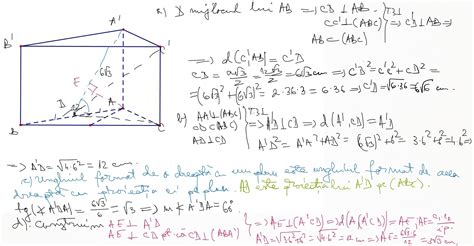 a) D mijlocul lui AB => CD ⊥ AB
CC'⊥(ABC) } T3⊥ => C'D ⊥ AB =>
AB⊂(ABC)
=> d(C', AB) = C'D
CD = = 6√3 cm => C'D² = C'C² + CD² =
= (6√3)² + (6√3)² = 2·36·3 = 6·36 => C'D = √6·36 = 6√6 cm.
b) AA'⊥(ABC) } T3⊥
AD⊥CD => A'D⊥CD => d(A', CD) = A'D
A'D² = A'A² + AD² = (6√3)² + 6² = 3·6² + 6² =
=> A'D = √4·6² = 12 cm.
c) unghiul format de o dreaptă cu un plan este unghiul format de acea
dreaptă cu proiecția ei pe plan. AD este proiecția lui A'D pe (ABC).
= 6√3/6 = √3 => m ∢ A'DA = 60°
d) Construim AE ⊥ A'D
AE ⊥ CD pt că CD⊥(ABA')
=> AE⊥(A'CD) => d(A, (A'CD)) = AE, AE =
B'
A'
C'
6√3
E
D
A
B
C